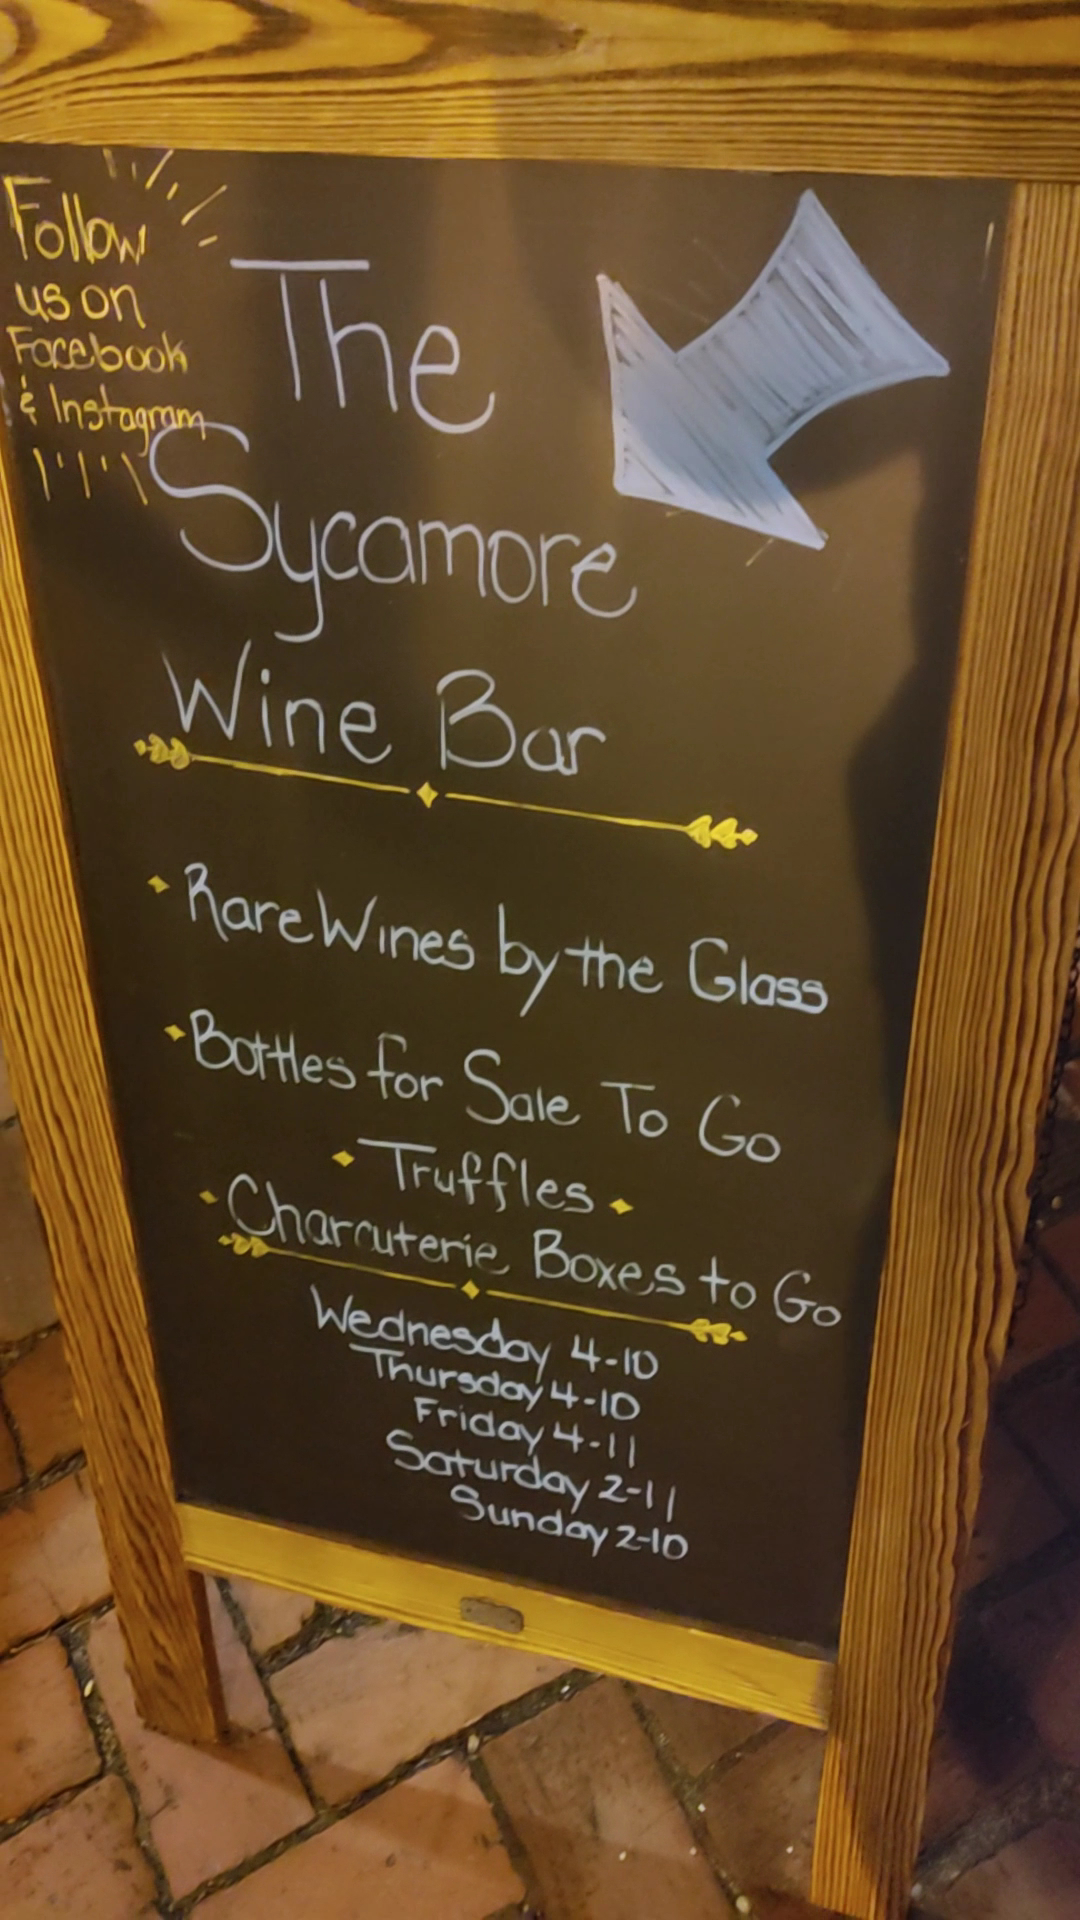 Follow
us on
Facebook
& Instagram
The
Sycamore
Wine Bar
Rare Wines by the Glass
Bottles for Sale To Go
Truffles
Charcuterie Boxes to Go
Wednesday 4-10
Thursday 4-10
Friday 4-11
Saturday 2-11
Sunday 2-10